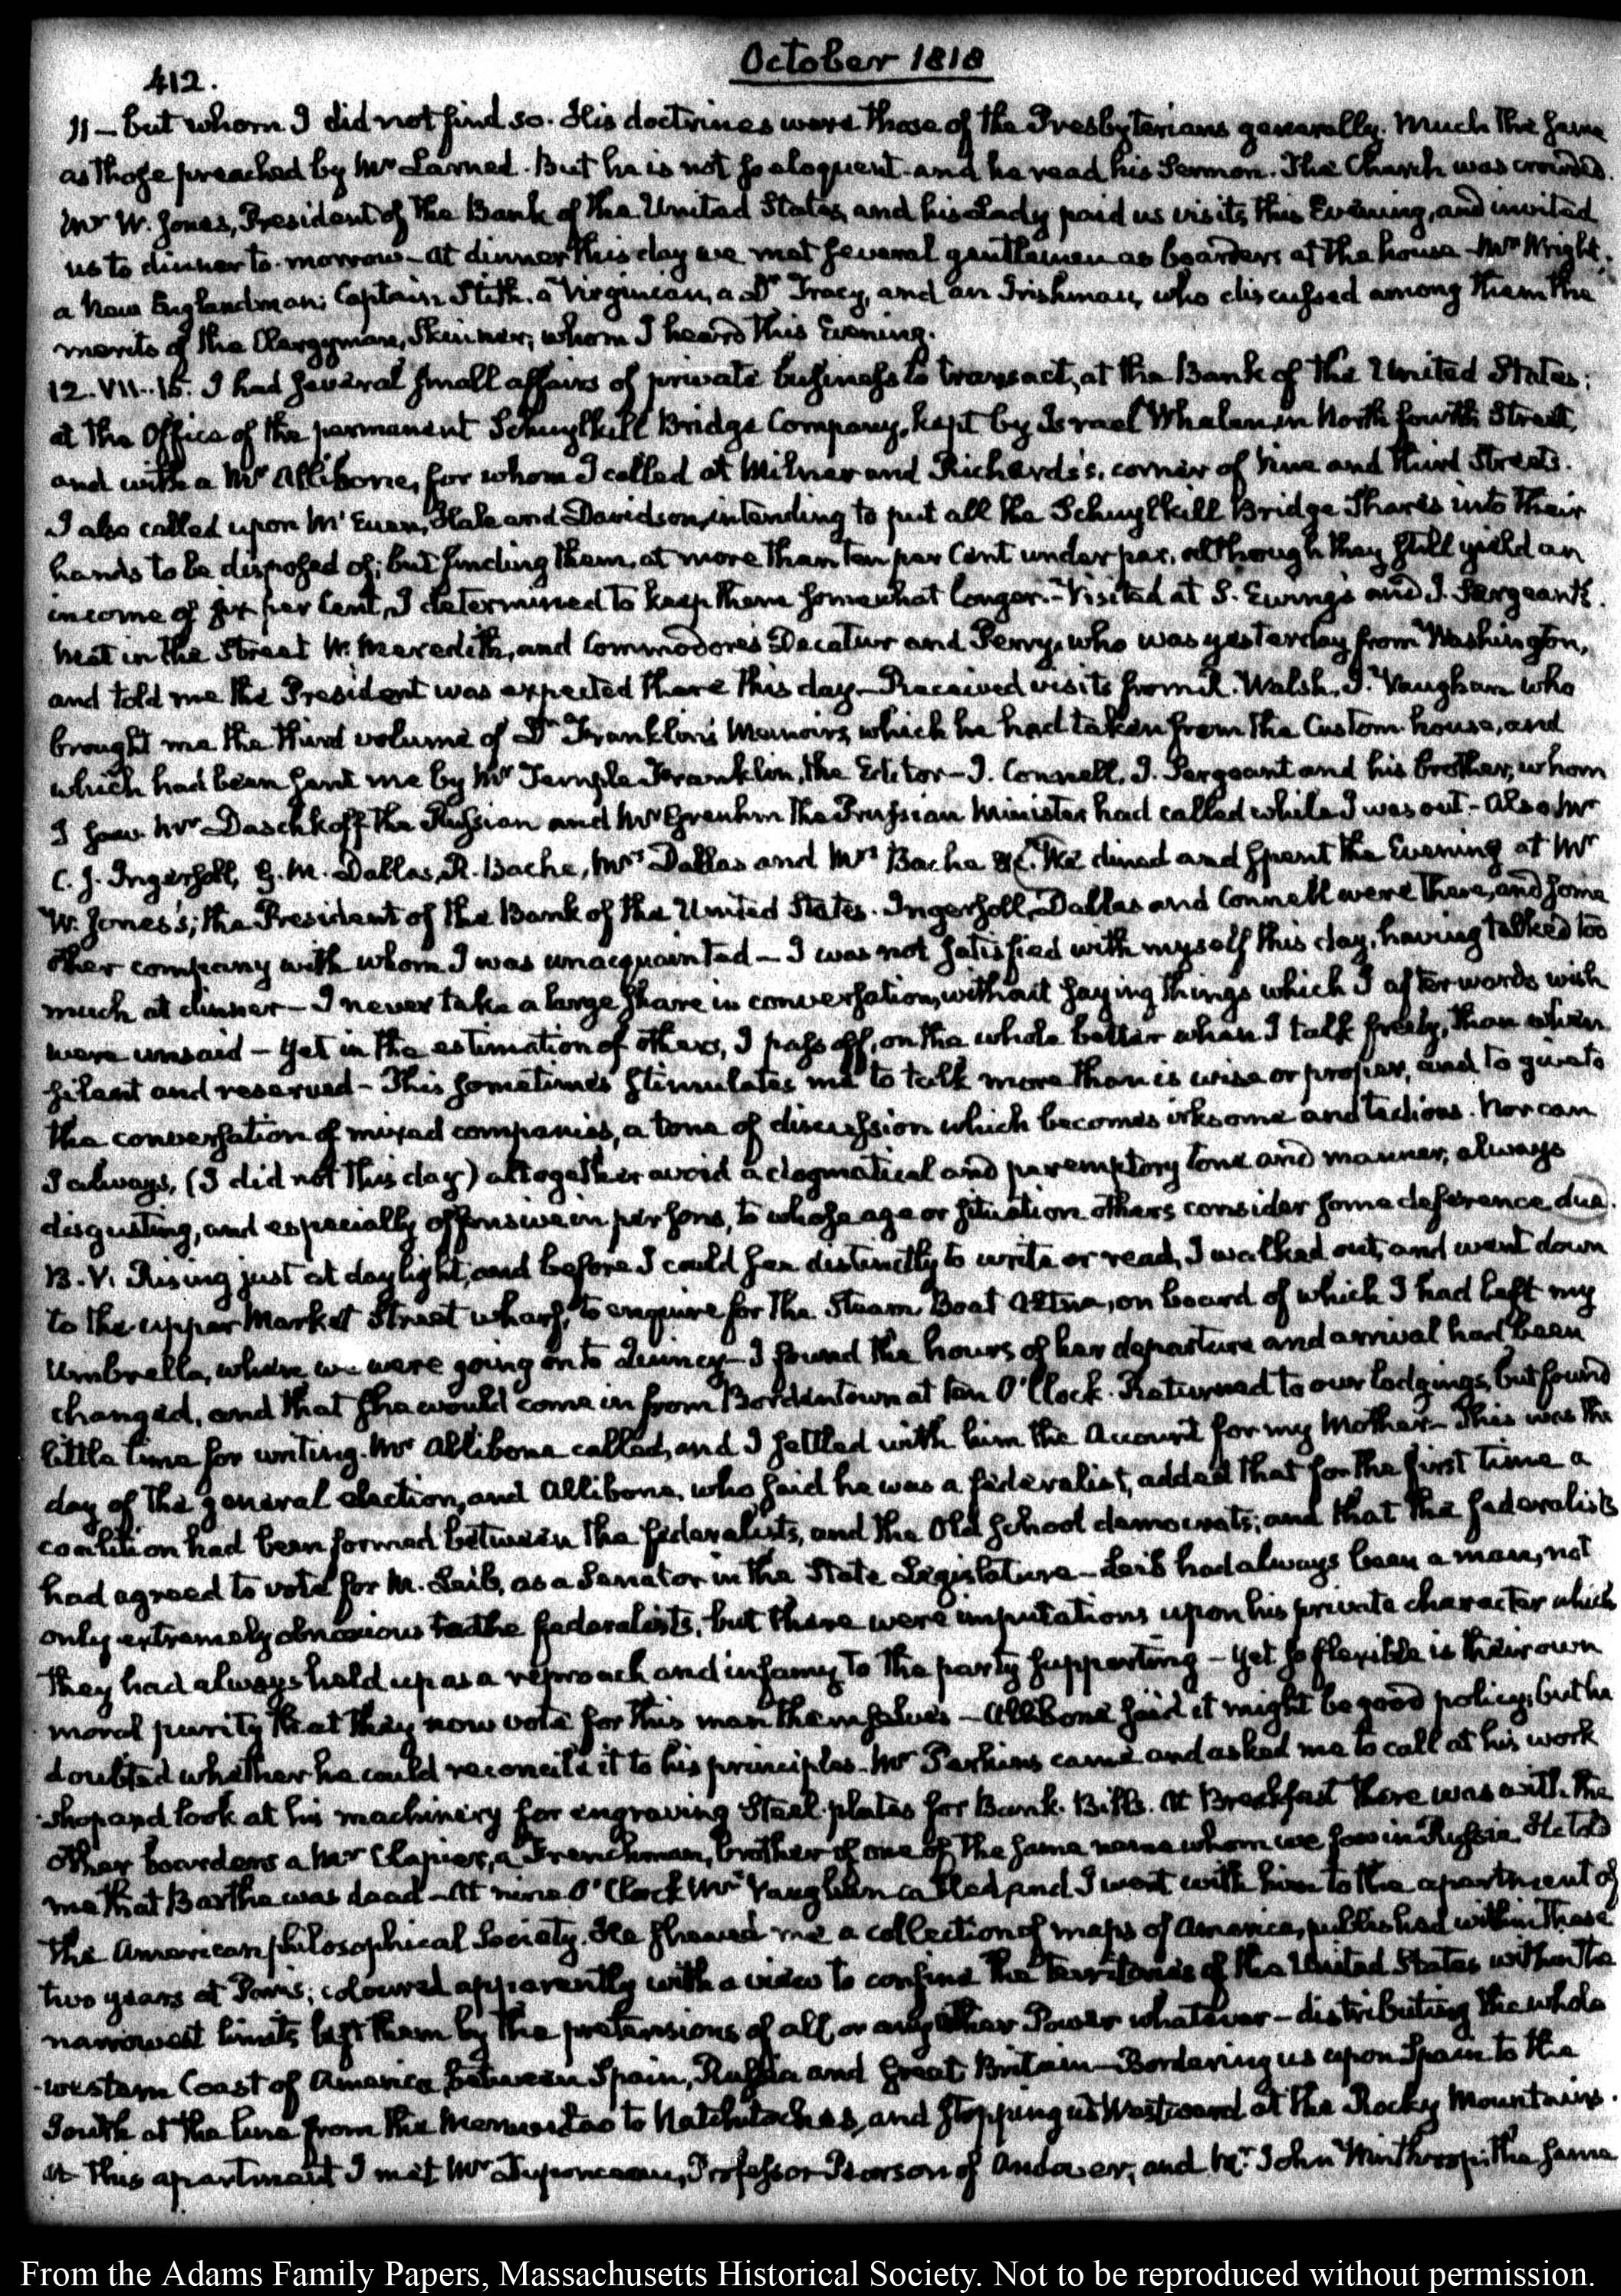 412.
October 1818
11 — but whom I did not find so. His doctrines were those of the Presbyterians generally. Much the same
as those preached by Mr Larned. But he is not so eloquent and he read his Sermon. The Church was crowded.
Mr W. Jones, President of the Bank of the United States, and his Lady paid us visits this Evening, and invited
us to dinner to-morrow — At dinner this day we met several gentlemen as boarders at the house — Mr Wright,
a New Englandman; Captain Stith, a Virginian, a Dr Tracy, and an Irishman, who discussed among them the
merits of the Clergyman, Skinner, whom I heard this Evening.
12. VII..15. I had several small affairs of private business to transact, at the Bank of the United States;
at the Office of the permanent Schuylkill Bridge Company, kept by Israel Whalen, in North fourth Street,
and with a Mr Allibone, for whom I called at Milnor and Richards's, corner of Vine and third Streets.
I also called upon McEuen, Hale and Davidson, intending to put all the Schuylkill Bridge Shares into their
hands to be disposed of; but finding them at more than ten per Cent under par, although they still yield an
income of six per Cent, I determined to keep them somewhat longer. — Visited at S. Ewing's and J. Sergeant's.
Met in the Street W. Meredith, and Commodores Decatur and Perry, who was yesterday from Washington,
and told me the President was expected there this day — Received visits from R. Walsh, J. Vaughan who
brought me the third volume of Dr Franklin's Memoirs, which he had taken from the Custom house, and
which had been sent me by Mr Temple Franklin, the Editor — J. Connell, J. Sergeant and his brother, whom
I saw. Mr Daschkoff the Russian and Mr Greuhm the Prussian Minister had called while I was out — Also Mr
C. J. Ingersoll, G. M. Dallas, R. Bache, Mrs Dallas and Mrs Bache &c. We dined and spent the Evening at Mr
W. Jones's; the President of the Bank of the United States. Ingersoll, Dallas and Connell were there, and some
other company with whom I was unacquainted — I was not satisfied with myself this day, having talked too
much at dinner — I never take a large share in conversation, without saying things which I afterwards wish
were unsaid — Yet in the estimation of others, I pass off, on the whole better when I talk freely, than when
silent and reserved — This sometimes stimulates me to talk more than is wise or proper, and to give to
the conversation of mixed companies, a tone of discussion which becomes irksome and tedious. Nor can
I always, (I did not this day) altogether avoid a dogmatical and peremptory tone and manner, always
disgusting, and especially offensive in persons, to whose age or situation others consider some deference due.
13. VI. Rising just at daylight, and before I could see distinctly to write or read, I walked out, and went down
to the upper Market Street wharf, to enquire for the Steam Boat Ætna, on board of which I had left my
Umbrella, when we were going on to Quincy — I found the hours of her departure and arrival had been
changed, and that she would come in from Bordentown at ten O'Clock. Returned to our lodgings, but found
little time for writing. Mr Allibone called, and I settled with him the Account for my Mother — This was the
day of the general election, and Allibone, who said he was a federalist, added that for the first time a
coalition had been formed between the federalists, and the Old School democrats; and that the federalists
had agreed to vote for M. Leib, as a Senator in the State Legislature — Leib had always been a man, not
only extremely obnoxious to the federalists, but there were imputations upon his private character which
they had always held up as a reproach and infamy to the party supporting — Yet so flexible is their own
moral purity that they now vote for this man themselves — Allibone said it might be good policy; but he
doubted whether he could reconcile it to his principles. Mr Perkins came and asked me to call at his work
shop and look at his machinery for engraving Steel plates for Bank Bills. At Breakfast there was with the
other boarders a Mr Clapier, a Frenchman, brother of one of the same name whom we saw in Russia. He told
me that Barthe was dead — At nine O'Clock Mr Vaughan called and I went with him to the apartment of
the American philosophical Society. He shewed me a collection of maps of America, published within these
two years at Paris; coloured apparently with a view to confine the territories of the United States within the
narrowest limits left them by the pretensions of all or any other Power whatever — distributing the whole
western Coast of America between Spain, Russia and Great Britain — Bordering us upon Spain to the
South at the line from the Mermentao to Natchitoches, and stopping us Westward at the Rocky Mountains.
At this apartment I met Mr Duponceau, Professor Pearson of Andover, and Mr John Winthrop; the same
From the Adams Family Papers, Massachusetts Historical Society. Not to be reproduced without permission.